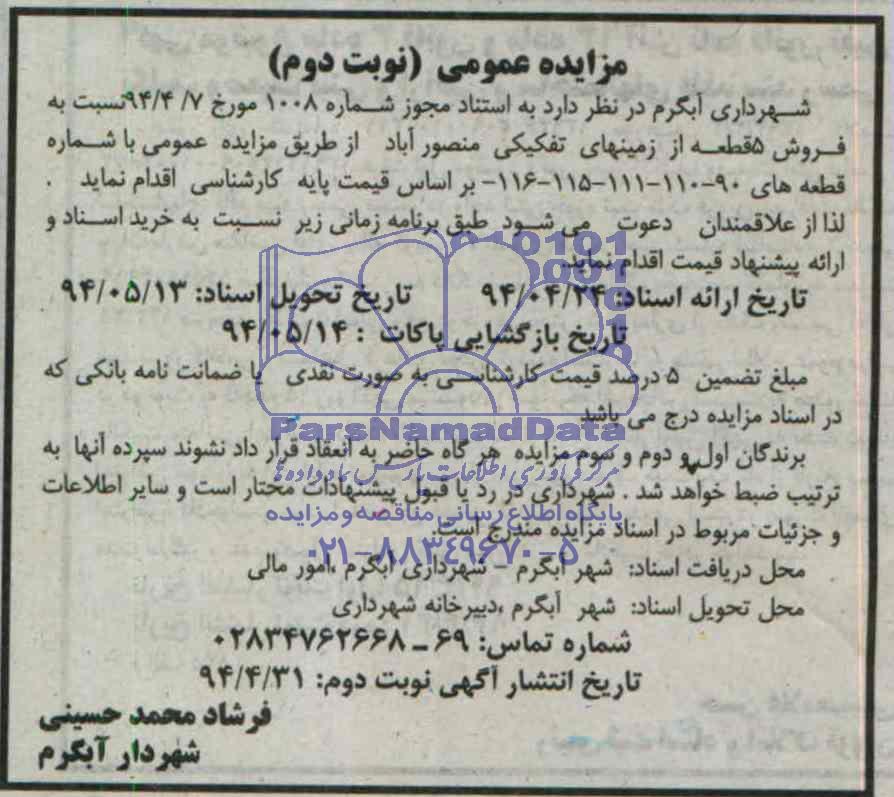 مزایده عمومی (نوبت دوم)
شهرداری آبگرم در نظر دارد به استناد مجوز شماره ۱۰۰۸ مورخ ۷/ ۹۴/۴ نسبت به
فروش ۵قطعه از زمینهای تفکیکی منصور آباد از طریق مزایده عمومی با شماره
قطعه های ۹۰-۱۱۰-۱۱۱-۱۱۵-۱۱۶- بر اساس قیمت پایه کارشناسی اقدام نماید .
لذا از علاقمندان دعوت می شود طبق برنامه زمانی زیر نسبت به خرید اسناد و
ارائه پیشنهاد قیمت اقدام نماید.
تاریخ ارائه اسناد: ۹۴/۰۴/۲۴ تاریخ تحویل اسناد: ۹۴/۰۵/۱۳
تاریخ بازگشایی پاکات : ۹۴/۰۵/۱۴
مبلغ تضمین ۵ درصد قیمت کارشناسی به صورت نقدی یا ضمانت نامه بانکی که
در اسناد مزایده درج می باشد
ParsNamadData
برندگان اول و دوم و سوم مزایده هر گاه حاضر به انعقاد قرار داد نشوند سپرده آنها به
مرکز فرآوری اطلاعات پارس نماد داده ها
ترتیب ضبط خواهد شد . شهرداری در رد یا قبول پیشنهادات مختار است و سایر اطلاعات
پایگاه اطلاع رسانی مناقصه و مزایده
و جزئیات مربوط در اسناد مزایده مندرج است.
۰۲۱-۸۸۳۴۹۶۷۰-۵
محل دریافت اسناد: شهر آبگرم – شهرداری آبگرم ،امور مالی
محل تحویل اسناد: شهر آبگرم ،دبیرخانه شهرداری
شماره تماس: ۶۹ ـ ۰۲۸۳۴۷۶۲۶۶۸
تاریخ انتشار آگهی نوبت دوم: ۹۴/۴/۳۱
فرشاد محمد حسینی
شهردار آبگرم